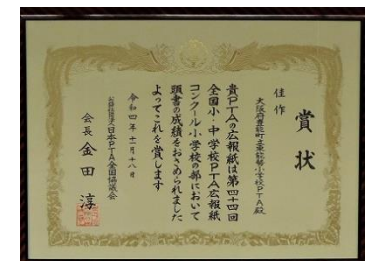 賞状
佳作
大阪府豊能町立東能勢小学校PTA殿
貴PTAの広報紙は第四十四回
全国小・中学校PTA広報紙
コンクール小学校の部において
頭書の成績をおさめられました
よってこれを賞します
令和四年十一月十八日
公益社団法人日本PTA全国協議会
会長 金田 淳